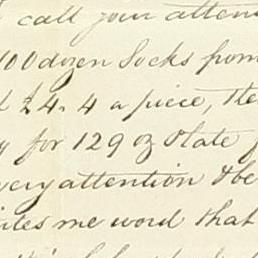 call your atten
100 dozen Socks from
24.4 a piece, the
for 129 oz Plate
very attention & be
ites me word that